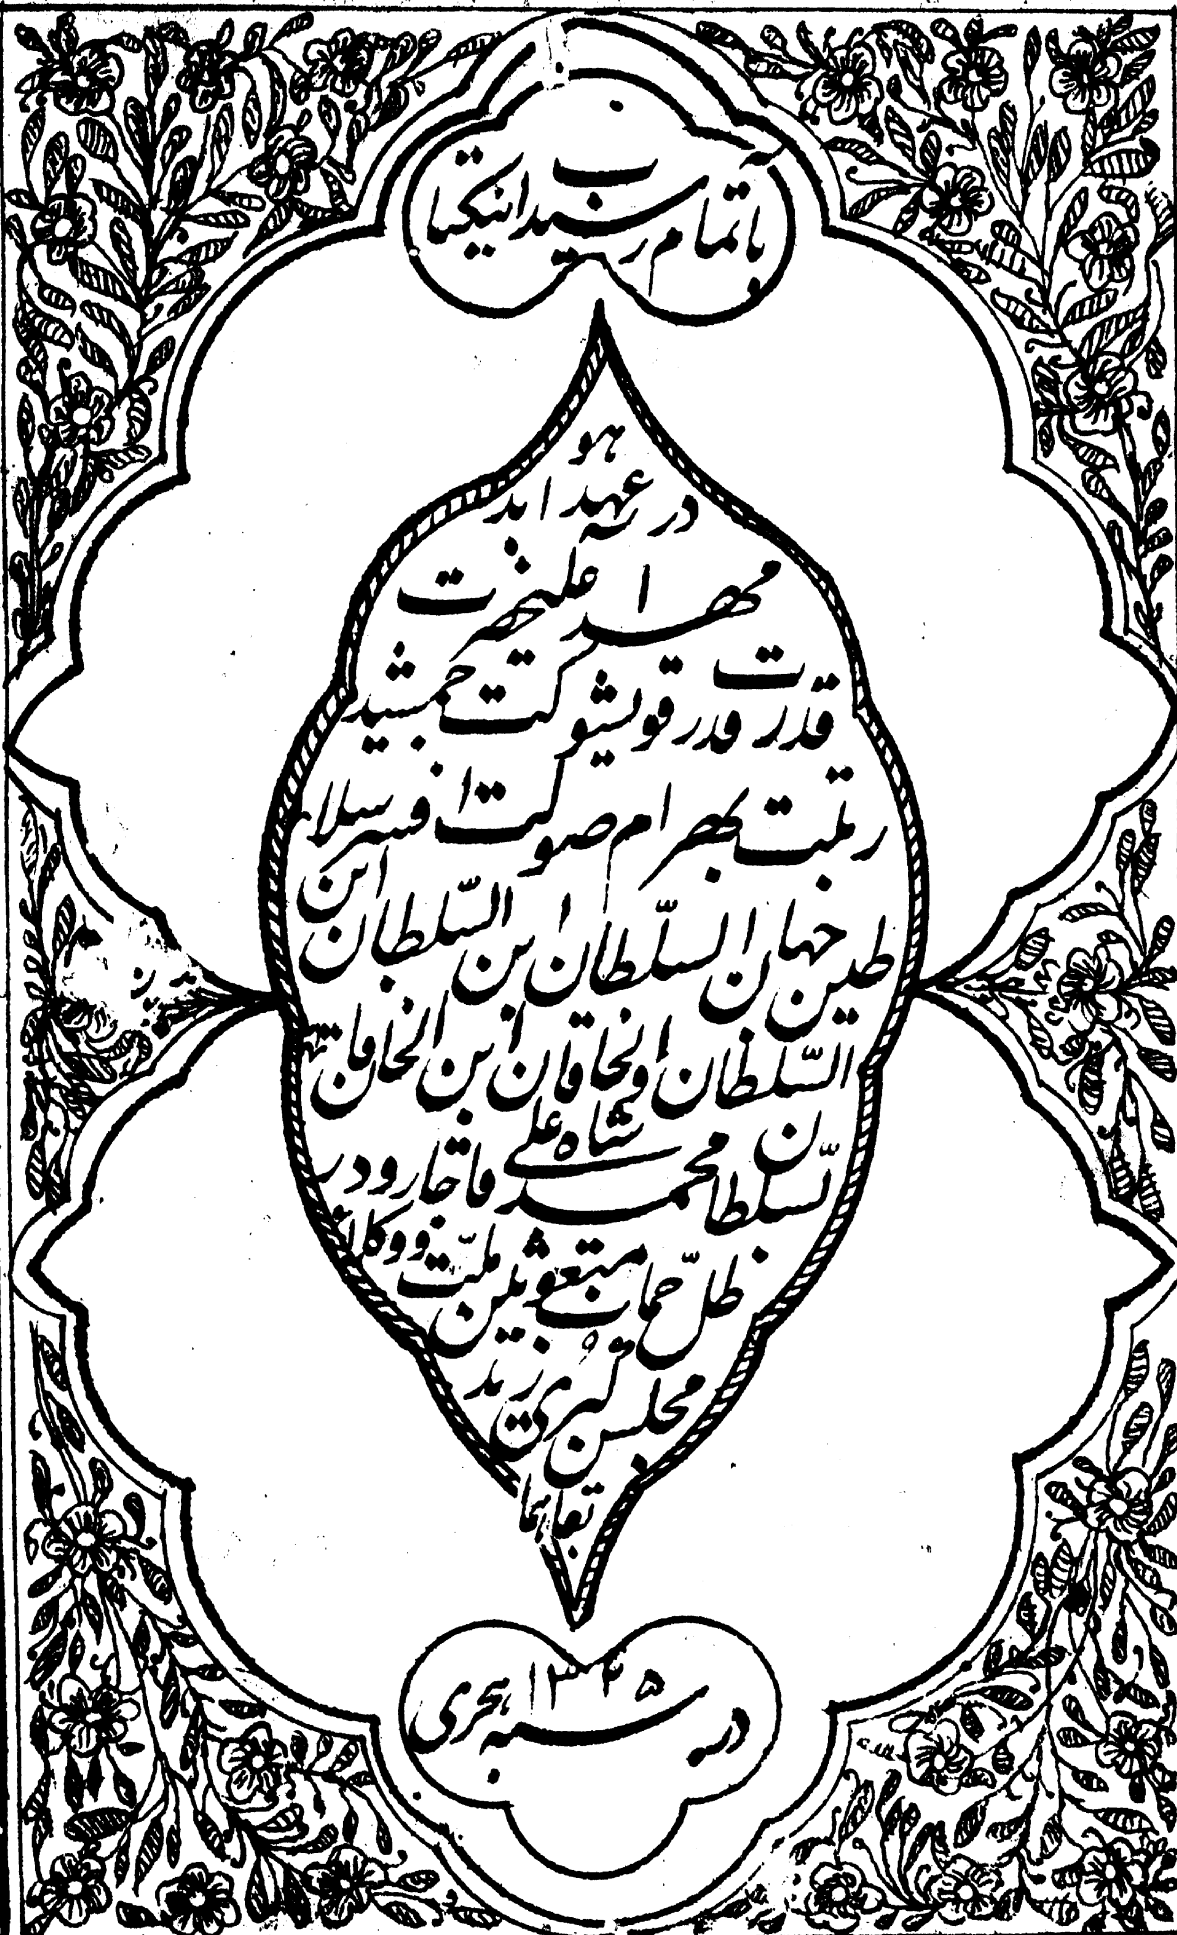 باتمام رسید اینکتاب
هو
در عهد ابد
مهد اعلیحضرت
قدر قدرت قویشوکت جمشید
رتبت بهرام صولت افسر سلا
طین جهان السّلطان ابن السّلطان ابن
السّلطان والخاقان ابن الخاقان
السّلطان محمد علی شاه قاجار و در
ظلّ حمایت مبعوثین ملّت و وکلاء
مجلس کبری زید
بقائها
در سنه ۱۳۲۵ هجری